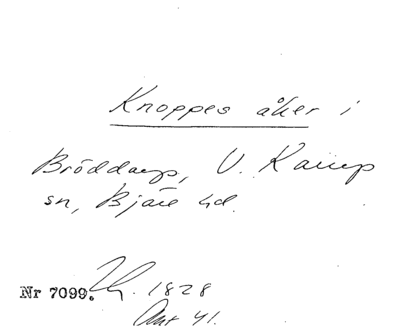 Knoppes åker i
Bröddarp, V. Karup
sn, Bjäre hd.
Nr 7099. 1828
41.